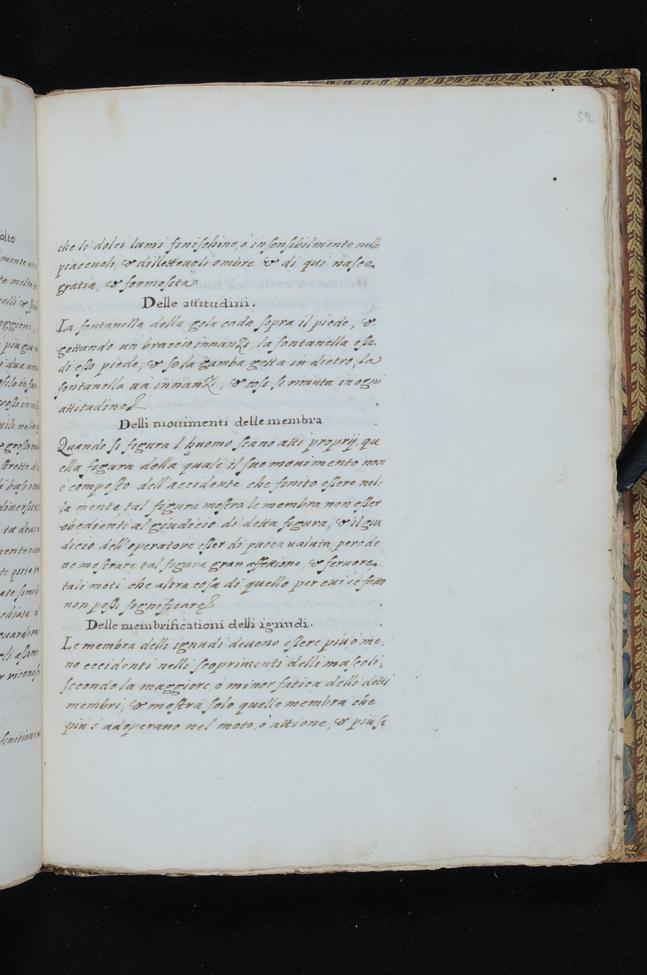 52
che li dolci lumi finischino, ò insensibilmente nelle
piacevoli, & dillettevoli ombre & di qui nasce
gratia, & formosità
Delle attitudini.
La fontanella della gola cada sopra il piede, &
gettando un braccio innanzi, la fontanella esce
di esso piede, & se la gamba getta in dietro, la
fontanella uà innanzi, & cosi si rimuta in ogni
attitudine
Delli mouimenti delle membra
Quando si figura l huomo scano atti proprij, qu
ella figura della quale il suo mouimento non
è composto dell' accidente che finito essere nel-
la mente, tal figura mostra le membra non esser
obedienti al giudicio di detta figura, & il giu
dicio dell' operatore esser di puoca ualuta, però de
ue mostrare tal figura gran affettione, & feruore
tali moti che altra cosa di quello per cui si è fatto
non possi significare
Delle membrificationi delli ignudi.
Le membra delli ignudi deueno essere piu ò me.
no eccidenti nelli scoprimenti delli muscoli,
secondo la maggiore, ò minor fatica delli detti
membri, & mostra solo quelle membra che
più s' adoperano nel moto, ò attione, & piu si
olto